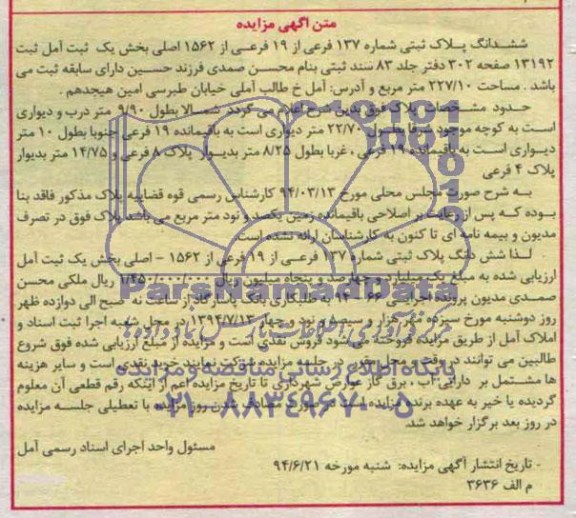 متن آگهی مزایده
ششدانگ پلاک ثبتی شماره ۱۳۷ فرعی از ۱۹ فرعی از ۱۵۶۲ اصلی بخش یک ثبت آمل ثبت
۱۳۱۹۲ صفحه ۳۰۲ دفتر جلد ۸۳ سند ثبتی بنام محسن صمدی فرزند حسین دارای سابقه ثبت می
باشد . مساحت ۲۲۷/۱۰ متر مربع و آدرس: آمل خ طالب آملی خیابان طبرسی امین هیجدهم .
حدود مشخصات پلاک فوق بدین شرح اعلام می گردد. شمالا بطول ۹/۹۰ متر درب و دیواری
است به کوچه موجود شرقا بطول ۲۲/۷۰ متر دیواری است به باقیمانده ۱۹ فرعی جنوبا بطول ۱۰ متر
دیواری است به باقیمانده ۱۹ فرعی ، غربا بطول ۸/۲۵ متر بدیوار پلاک ۸ فرعی و ۱۴/۷۵ متر بدیوار
پلاک ۴ فرعی
به شرح صورت مجلس محلی مورخ ۹۴/۰۳/۱۳ کارشناس رسمی قوه قضاییه پلاک مذکور فاقد بنا
بوده که پس از رعایت بر اصلاحی باقیمانده زمین یکصد و نود متر مربع می باشد پلاک فوق در تصرف
مدیون و بیمه نامه ای تا کنون به کارشناسان ارائه نشده است.
لذا شش دانگ پلاک ثبتی شماره ۱۳۷ فرعی از ۱۹ فرعی از ۱۵۶۲ - اصلی بخش یک ثبت آمل
ارزیابی شده به مبلغ یک میلیارد و چهارصد و پنجاه میلیون ریال ۱/۴۵۰/۰۰۰/۰۰۰ ریال ملکی محسن
صمدی مدیون پرونده اجرایی ۹۴۰۰۱۶۶ به طلبکاری بانک پاسارگاد از ساعت نه صبح الی دوازده ظهر
روز دوشنبه مورخ سیزده مهر هزار و سیصد و نود و چهار ۱۳۹۴/۷/۱۳ در محل شعبه اجرا ثبت اسناد و
املاک آمل از طریق مزایده فروخته می شود فروش نقدی است و مزایده از مبلغ ارزیابی شده فوق شروع
طالبین می توانند در وقت و محل مقرر در جلسه مزایده شرکت نمایند خرید نقدی است و سایر هزینه
ها مشتمل بر دارایی آب ، برق گاز عوارض شهرداری تا تاریخ مزایده اعم از اینکه رقم قطعی آن معلوم
گردیده یا خیر به عهده برنده مزایده است در صورت مصادف شدن روز مزایده با تعطیلی جلسه مزایده
در روز بعد برگزار خواهد شد.
مسئول واحد اجرای اسناد رسمی آمل
- تاریخ انتشار آگهی مزایده: شنبه مورخه ۹۴/۶/۲۱
م الف ۳۶۳۶
ParsNamadData
پایگاه اطلاع رسانی مناقصه و مزایده
۰۲۱-۸۸۳۴۹۶۷۰-۵